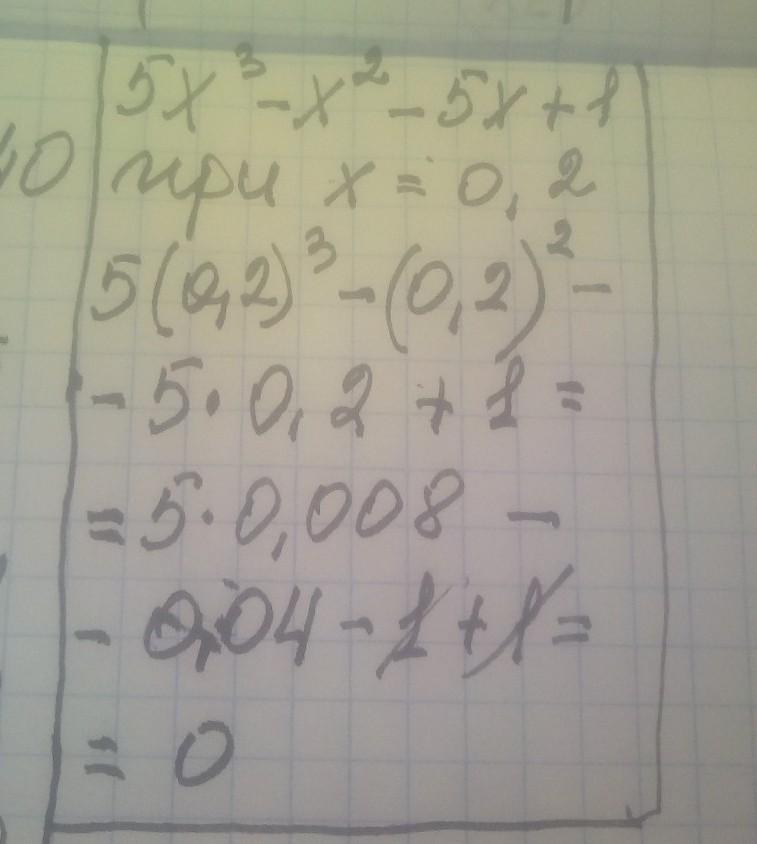 5x³ - x² - 5x + 1
при x = 0,2
5(0,2)³ - (0,2)² -
- 5 · 0,2 + 1 =
= 5 · 0,008 -
- 0,04 - 1 + 1 =
= 0